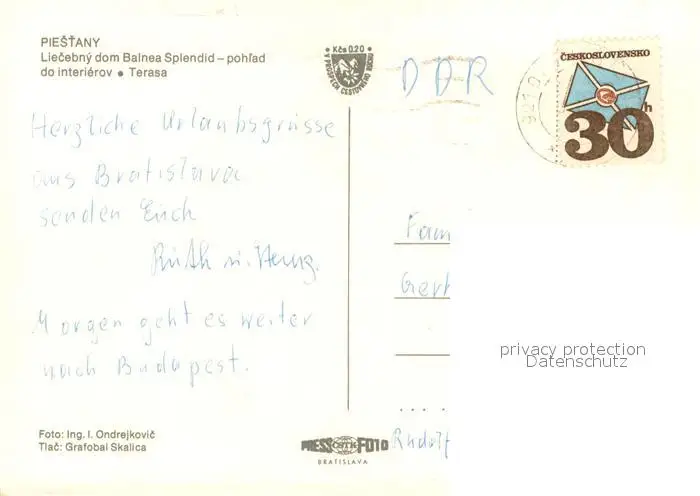 PIEŠŤANY
Liečebný dom Balnea Splendid – pohľad
do interiérov ● Terasa
Kčs 0.20
V PROSPECH CESTOVNÉHO RUCHU
DDR
ČESKOSLOVENSKO
30h
Herzliche Urlaubsgrüsse
aus Bratislava
senden Euch
Ruth u. Heinz.
Morgen geht es weiter
nach Budapest.
Fam
Gerh
privacy protection
Datenschutz
Rudolf
Foto: Ing. I. Ondrejkovič
Tlač: Grafobal Skalica
PRESS ČSTK FOTO
BRATISLAVA